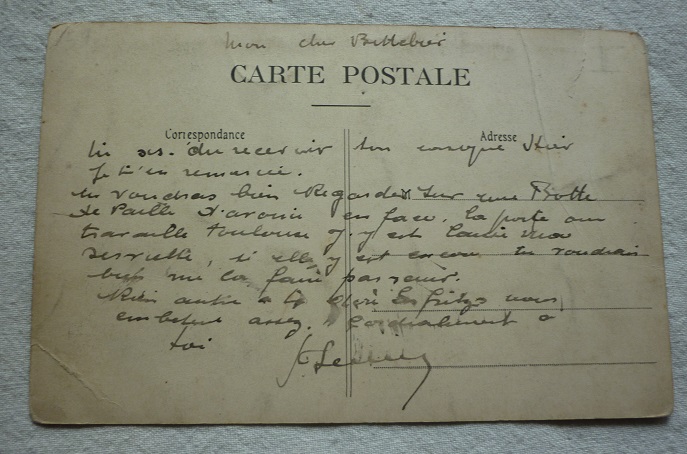 Mon cher
CARTE POSTALE
Correspondance
Adresse
du recevoir ton Hier
je t'en remercie.
tu voudras bien Regarder sur une Botte
de Paille d'avoine en face la porte ou
travaille Toulouse j'y est laissé ma
serviette, si elle y est encore tu voudrais
bien me la faire parvenir.
Rien autre a te dire les fritz nous
embetent assez. Cordialement a
toi